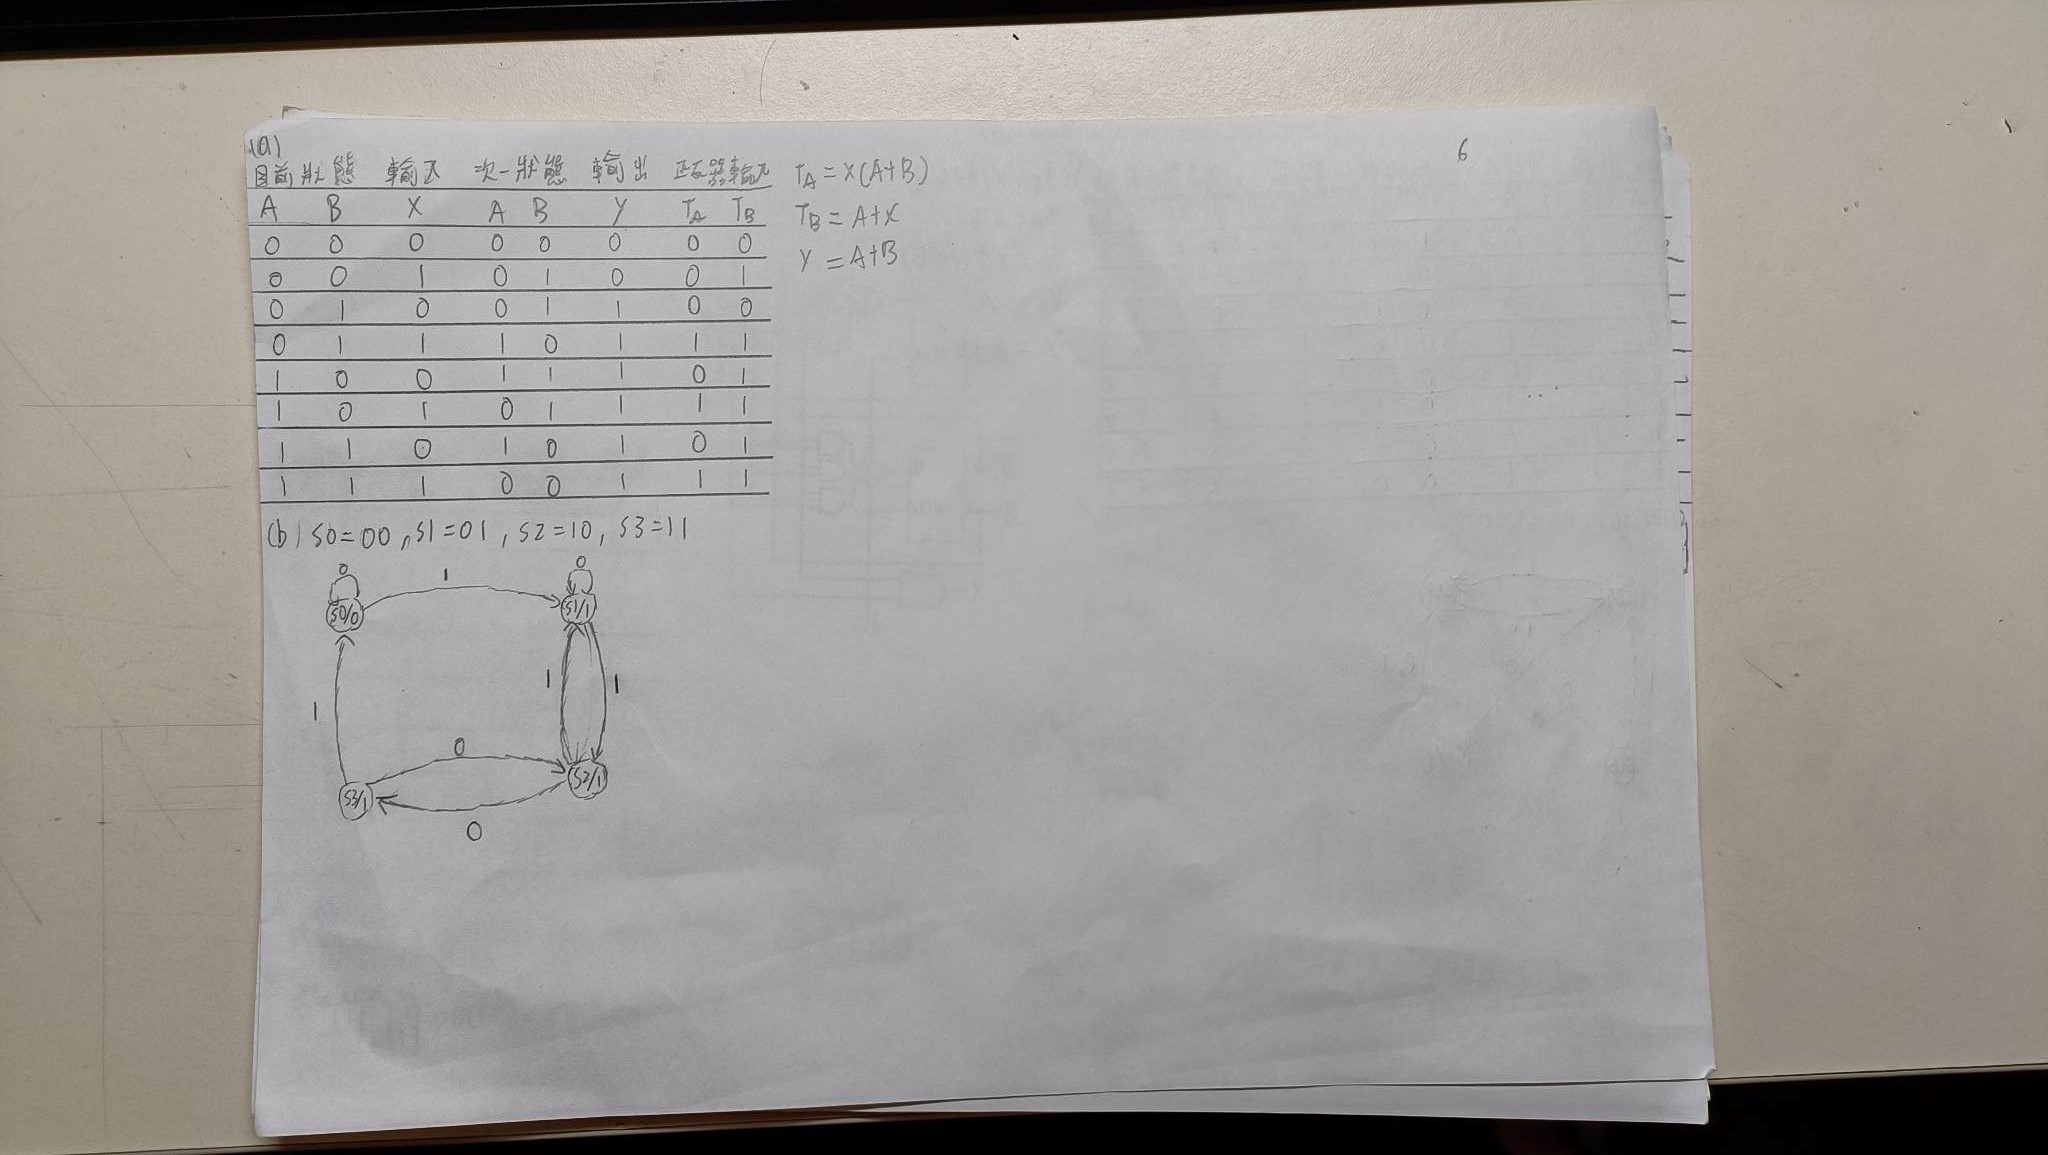 (a)
6
目前狀態 輸入 次一狀態 輸出 正反器輸入
A B X A B Y TA TB
0 0 0 0 0 0 0 0
0 0 1 0 1 0 0 1
0 1 0 0 1 1 0 0
0 1 1 1 0 1 1 1
1 0 0 1 1 1 0 1
1 0 1 0 1 1 1 1
1 1 0 1 0 1 0 1
1 1 1 0 0 1 1 1
TA = X(A+B)
TB = A+X
Y = A+B
(b) S0=00, S1=01, S2=10, S3=11
0 1 0
S0/0 S1/1
1 1 1
0
S3/1 S2/1
0